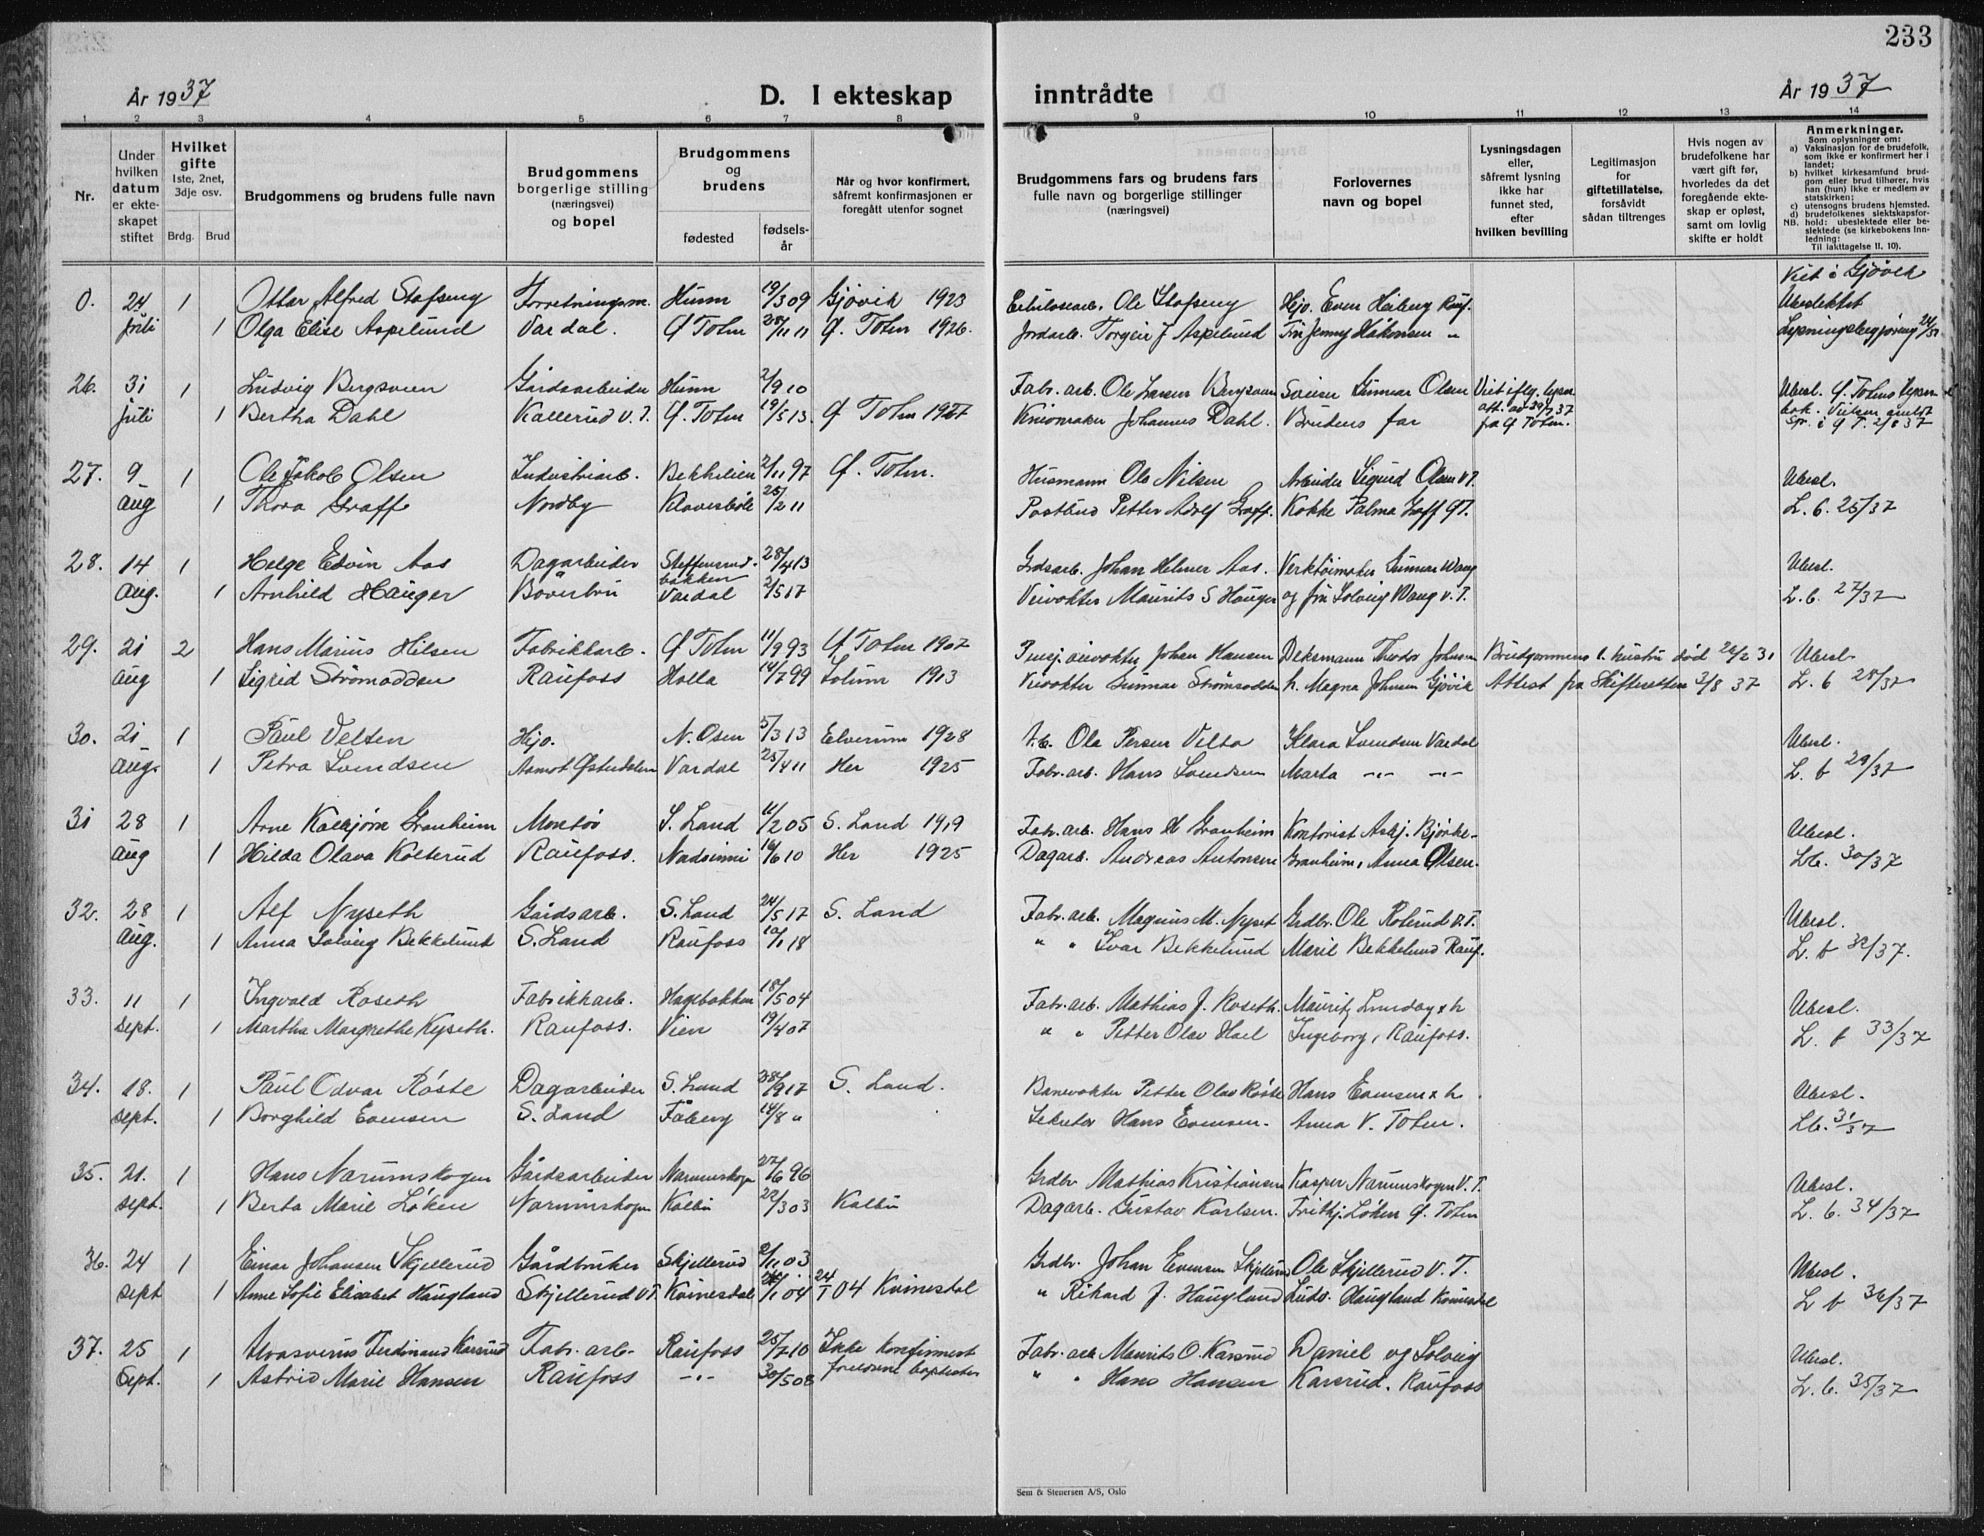 233
År 1937 D. I ekteskap inntrådte År 1937
1 2 3 4 5 6 7 8 9 10 11 12 13 14
Nr.
Under hvilken datum er ekteskapet stiftet
Hvilket gifte 1ste, 2net, 3dje osv.
Brdg. Brud
Brudgommens og brudens fulle navn
Brudgommens borgerlige stilling (næringsvei) og bopel
Brudgommens og brudens
fødested
fødselsår
Når og hvor konfirmert, såfremt konfirmasjonen er foregått utenfor sognet
Brudgommens fars og brudens fars fulle navn og borgerlige stillinger (næringsvei)
Forlovernes navn og bopel
Lysningsdagen eller, såfremt lysning ikke har funnet sted, efter hvilken bevilling
Legitimasjon for giftetillatelse, forsåvidt sådan tiltrenges
Hvis nogen av brudefolkene har vært gift før, hvorledes da det foregående ekteskap er opløst, samt om lovlig skifte er holdt
Anmerkninger.
Som oplysninger om:
a) Vaksinasjon for de brudefolk, som ikke er konfirmert her i landet;
b) hvilket kirkesamfund brudgom eller brud tilhører, hvis han (hun) ikke er medlem av statskirken;
c) utensogns brudens hjemsted.
d) brudefolkenes slektskapsforhold: ubeslektede eller beslektede (se kirkebokens Innledning:
NB.
Til iakttagelse II. 10).
Viet i Gjøvik
0. 24 1 Ottar Alfred Stafseng Forretningsm. Hunn 19/3 09 Gjøvik 1923 Ole Stafseng Hejo. Even Heiberg Rauf. Ubeslektet
juli 1 Olga Elise Aspelund Vardal. Ø Toten 28/11 11 Ø. Toten 1926. Jordarb. Torgeir J Aspelund Frk Jenny Håkonsen " Lysningsbegjæring 24/37
26. 31 1 Ludvig Bergsveen Gårdsarbeider Hunn 2/9 10 Fab. arb. Ole Larsen Bergsveen Gunnar Olsen Viet iflg. lysn. Ubesl. Ø. Totens
juli 1 Bertha Dahl Kallerud V. T. Ø. Toten 19/5 13 Ø Toten 1927 Johannes Dahl. Brudens far att. av 29/7 37 fra Ø Toten.
27. 9 1 Ole Jakob Olsen Industriarb. Bekkelien 2/11 97 Ø. Toten. Husmann Ole Nilsen Arbeider Sigurd Olsen V T. Ubesl.
Aug 1 Thora Graff Nordby Klavesbøle 25/2 11 Postbud Petter Adolf Graff. Kokke Palma Graff ØT. L. b. 25/37
28. 14 1 Helge Edvin Aas Dagarbeider Steffensrudbakken 28/4 13 Grdsarb. Johan Helmer Aas. Verktøimaker Gunnar Wang Ubesl.
Aug. 1 Arnhild Hauger Bøverbru Vardal 2/5 17 Veivokter Maurits S Hauger og fru Solveig Wang V. T. L. b. 27/37
29. 21 2 Hans Marius Hilsen Fabrikkarb. Ø Toten 11/9 93 Ø Toten 1907 Pensj. veivokter Johan Hansen Theodor Johnsen Brudgommens 1. hustru død 26/2 31 Ubesl.
Aug 1 Sigrid Strømodden Raufoss Holla 14/7 99 Solum 1913 Veivokter Gunnar Strømsodden h. Magna Johnsen Gjøvik Attest fra Skifteretten 3/8 37 L. b 28/37
30. 21 1 Paul Velten Hejo. N. Osen 5/3 13 Elverum 1928 Ola Persen Velta Klara Svendsen Vardal Ubesl.
Aug. 1 Petra Svendsen Aamot Østerdalen Vardal 25/4 11 Her 1925 Fabr. arb. Hans Svendsen Marta -"- -"- L. b 29/37
31 28 1 Arne Kolbjørn Granheim Montør S. Land 11/2 05 S. Land 1919 Fabr. arb. Hans H Granheim Kontorist Asbj. Bjørke- Ubesl.
Aug 1 Hilda Olava Kolterud Raufoss. Nordsinni 16/6 10 Her 1925 Dagarb. Andreas Antonsen Granheim, Anna Olsen. Lb. 30/37
32. 28 1 Alf Nyseth Gårdsarb. S. Land 24/5 17 S. Land Fabr. arb. Magnus M. Nyset Grdbr. Ole Rølund V. T. Ubesl.
Aug. 1 Anna Solveig Bekkelund S. Land Raufoss 10/1 18 " " Ivar Bekkelund Marie Bekkelund Rauf. L. b 32/37.
33. 11 1 Ingvald Roseth Fabrikkarb. Hagebakken 18/5 04 Fabr. arb. Mathias J. Roseth. Mauritz & h Ubesl.
sept. 1 Martha Margrethe Kyseth. Raufoss. Vien 19/4 07 " " Petter Olav Hoel Ingeborg, Raufoss. L. b 33/37
34. 18. 1 Paul Odvar Røste Dagarbeider S. Land 28/9 17 S. Land. Banevokter Petter Olav Røste Hans Evensen & h Ubesl.
sept. 1 Borghild Evensen S. Land Fåberg 14/8 " Sekretær Hans Evensen. Anna V. Toten. Lb. 31/37
35. 21. 1 Hans Narumskogen Gårdsarbeider Narumskogn 27/6 96 Grdbr Mathias Kristiansen Kasper Narumskogen V. T. Ubesl.
sept. 1 Berta Marie Løken Narumskogn Kolbu 22/3 03 Kolbu Dagarb. Gustav Karlsen. Frithj. Løken Ø. Toten L. b. 34/37
36. 24 1 Einar Johansen Skjellerud Gårdbruker Skjellerud 2/11 03 Grdbr. Johan Evensen Skjellerud Ole Skjellerud V. T. Ubesl.
sept 1 Anne Sofie Elisabet Haugland Skjellerud V T. Kvinesdal 24/1 04 24/I 04 Kvinesdal " Rikard J. Haugland Ludv. Haugland Kvinesdal L b 36/37
37. 25 1 Ahasverus Ferdinand Karsrud Fabr. arb. Raufoss 25/7 10 Ikke konfirmert Fabr. arb Maurits O. Karsrud Daniel og Solveig Ubesl.
Sept. 1 Astrid Marie Hansen Raufoss -"- 30/5 08 foreldrene baptister " " Hans Hansen Karsrud. Raufoss L. b. 35/37
Sem & Stenersen A/S, Oslo